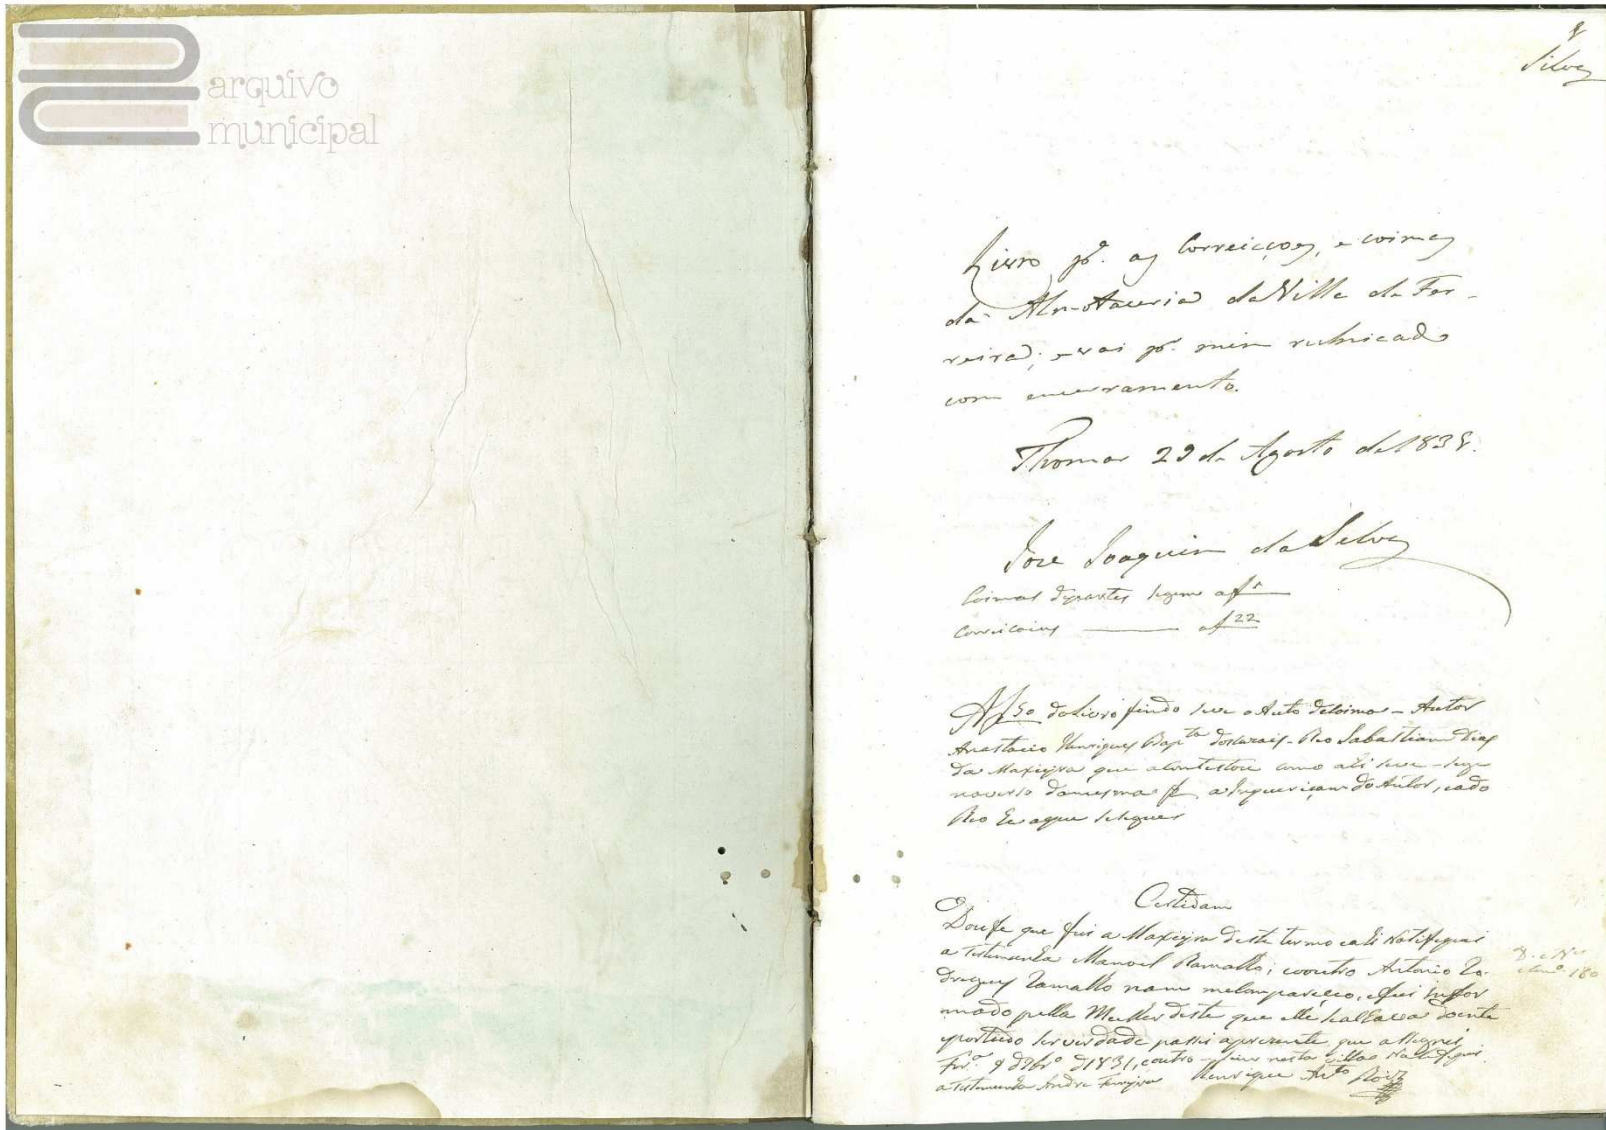 arquivo
municipal
1
Silva
Livro p.ª as Correicções, e coimas
da Almotaceria da Villa de Fer-
reira; e vai p.r mim rubricado
com encerramento.
Thomar 29 de Agosto de 183
Jose Joaquim da Silva
Coimas departes segem af 1
Correicoins af 22
Af 50 do Livro findo seve o Auto de Coimas - Autor
Anastacio Henriques Bap.ta dos Curaiz - Reo Sabastiam Dias
da Maxieyra que acontestou como ali seve - sege
noverso damesma f a do Autor, eado
Reo he aque sesegue
Certidam
Dou fe que fui a Maxieyra deste termo eali Notifiquei
a Testemunha Manoel Ramalho; eooutro Antonio Ro-
drigues Ramalho nam me Compareceo, efui infor
mado pella Mulher deste que elle seachava doente
eportudo serverdade passei aprezente que asignei
Fer.ª 9 d 9br.º d 1831, eoutro sim nesta villa Notifiquei
a Testemunha Andre Ferreyra Henrique Ant.º Roiz
180